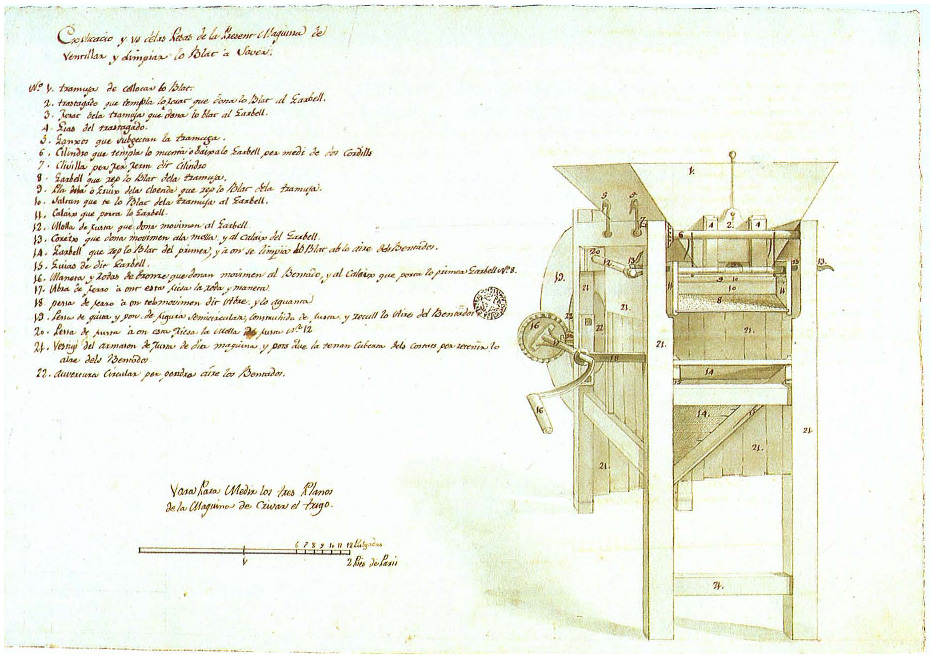 Explicacio y us de las Pesas de la Present Maquina de
Ventillar y Limpiar lo Blat â Saver:
Nº 1. tramuja de collocar lo Blat.
2. trastagado que templa lo que dona lo Blat al Garbell.
3. dela tramuja que dona lo blat al Garbell.
4. Guias del trastagado.
5. Ganxos que subgectan la tramuja.
6. Cilindro que templa lo munta o baixalo Garbell per medi de dos Cordills
7. Clivilla per fer ferm dit cilindro
8. Garbell que rep lo Blat dela tramuja.
9. Pla dela que rep lo Blat dela tramuja.
10. que te lo Blat dela tramuja al Garbell.
11. Calaix que porta lo Garbell.
12. Molla de fusta que dona movimen al Garbell.
13. que dona movimen ala molla, y al Calaix del Garbell.
14. Garbell que rep lo Blat del primer, y â on se limpia lo Blat ab lo aire dels Bentados.
15. Guias de dit Garbell.
16. Maneta y Rodas de bronze que donan movimen al Bentado, y al Calaix que porta lo primer Garbell Nº 8.
17. de ferro â ont esta fixa la roda y maneta.
18 pessa de ferro â on te lo movimen dit Abre, y lo aguanta
19. de figura Semicircular, construhida de fusta, y recull lo Aires del Bentador
20. Pessa de fusta â on esta fixa la Molla de fusta Nº 12
21. del armason de fusta de dita maquina, y pots que la tenan Cuberta dels Costats per retenir lo
aire dels Bentados
22. Auvertura Circular per pendre aire los Bentados.
Vara Para Medir los tres Planos
de la Maquina de Crivar el trigo.
6 7 8 9 10 11 12 Pulgadas
1
2 Pies de Paris
1.
5 5
4 2. 4
7
6
20
12
13
19.
21
21.
11
9
10
8
11
15
13
22
21.
16
18
21.
14
15
16
14.
21.
21.
21.
21.